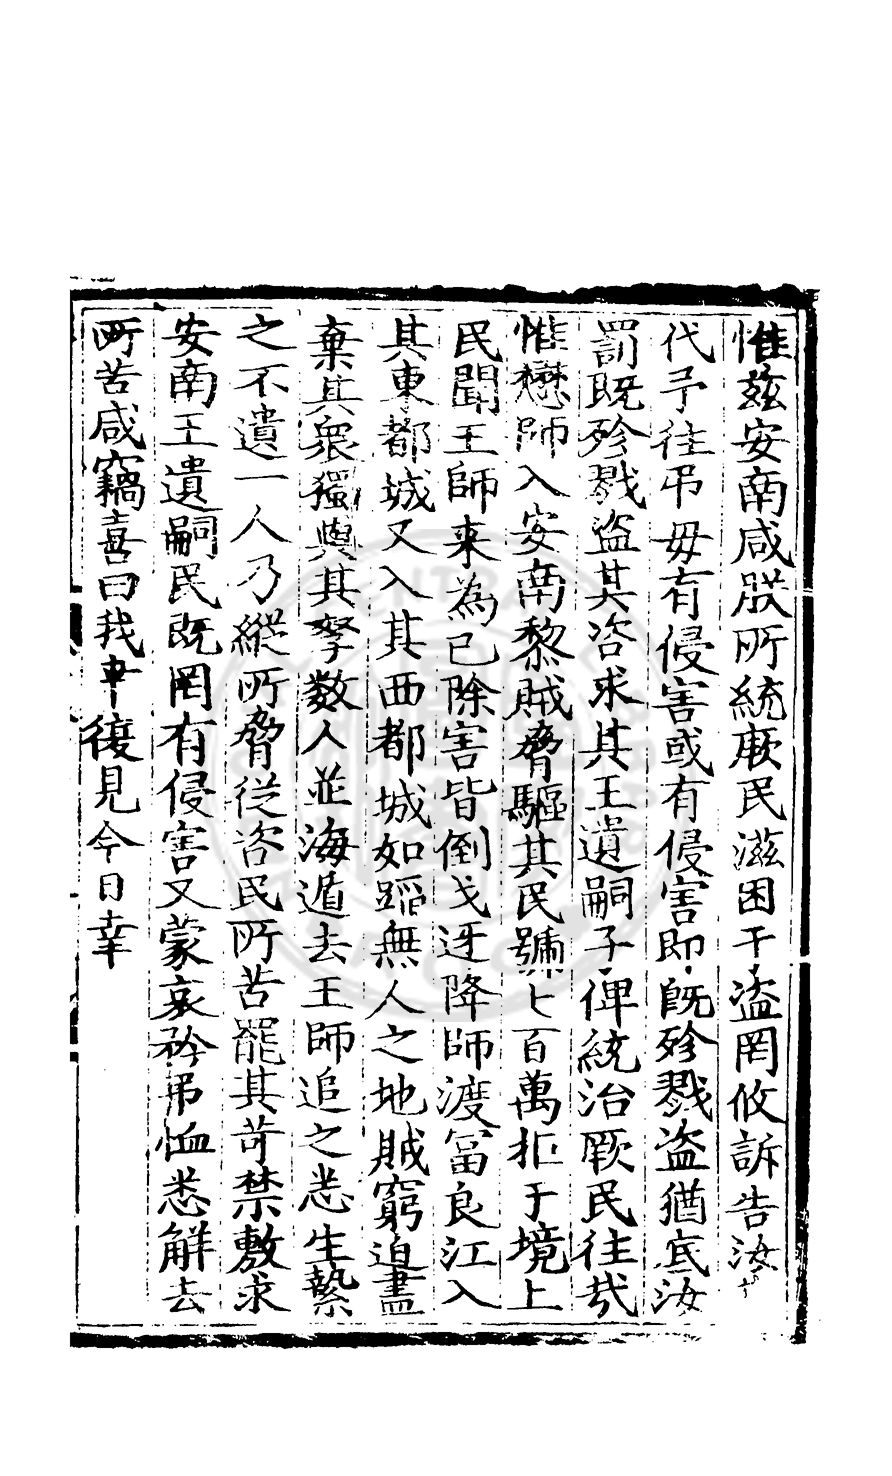 惟茲安南咸朕所統厥民滋困于盜罔攸訴告汝
代予往吊毋有侵害或有侵害即既殄戮盜猶底汝
罰既殄戮盜其咨求其王遺嗣子俾統治厥民往哉
惟懋師入安南黎賊脅驅其民號七百萬拒于境上
民聞王師來為已除害皆倒戈迓降師渡冨良江入
其東都城又入其西都城如蹈無人之地賊窮迫盡
棄其衆獨與其孥數人並海遁去王師追之悉生縶
之不遺一人乃縱所脅從咨民所苦罷其苛禁敷求
安南王遺嗣民既罔有侵害又蒙哀矜吊恤悉解去
所苦咸竊喜曰我軍復見今日幸